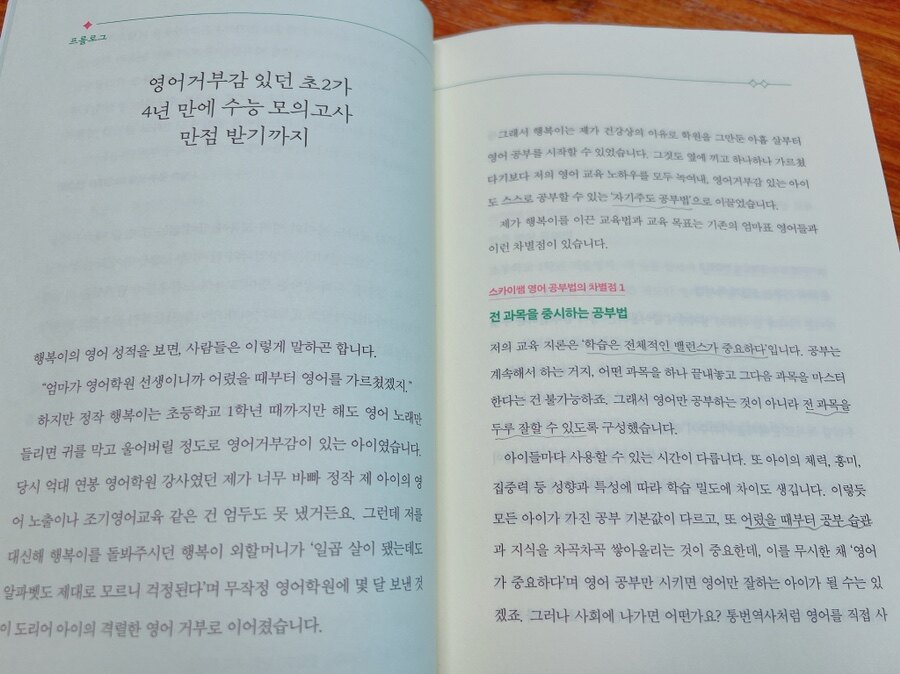 프롤로그
영어거부감 있던 초2가
4년 만에 수능 모의고사
만점 받기까지
행복이의 영어 성적을 보면, 사람들은 이렇게 말하곤 합니다.
"엄마가 영어학원 선생이니까 어렸을 때부터 영어를 가르쳤겠지."
하지만 정작 행복이는 초등학교 1학년 때까지만 해도 영어 노래만
들리면 귀를 막고 울어버릴 정도로 영어거부감이 있는 아이였습니다.
당시 억대 연봉 영어학원 강사였던 제가 너무 바빠 정작 제 아이의 영
어 노출이나 조기영어교육 같은 건 엄두도 못 냈거든요. 그런데 저를
대신해 행복이를 돌봐주시던 행복이 외할머니가 '일곱 살이 됐는데도
알파벳도 제대로 모르니 걱정된다'며 무작정 영어학원에 몇 달 보낸 것
이 도리어 아이의 격렬한 영어 거부로 이어졌습니다.
그래서 행복이는 제가 건강상의 이유로 학원을 그만둔 아홉 살부터
영어 공부를 시작할 수 있었습니다. 그것도 옆에 끼고 하나하나 가르쳤
다기보다 저의 영어 교육 노하우를 모두 녹여내, 영어거부감 있는 아이
도 스스로 공부할 수 있는 '자기주도 공부법'으로 이끌었습니다.
제가 행복이를 이끈 교육법과 교육 목표는 기존의 엄마표 영어들과
이런 차별점이 있습니다.
스카이쌤 영어 공부법의 차별점 1
전 과목을 중시하는 공부법
저의 교육 지론은 '학습은 전체적인 밸런스가 중요하다'입니다. 공부는
계속해서 하는 거지, 어떤 과목을 하나 끝내놓고 그다음 과목을 마스터
한다는 건 불가능하죠. 그래서 영어만 공부하는 것이 아니라 전 과목을
두루 잘할 수 있도록 구성했습니다.
아이들마다 사용할 수 있는 시간이 다릅니다. 또 아이의 체력, 흥미,
집중력 등 성향과 특성에 따라 학습 밀도에 차이도 생깁니다. 이렇듯
모든 아이가 가진 공부 기본값이 다르고, 또 어렸을 때부터 공부 습관
과 지식을 차곡차곡 쌓아올리는 것이 중요한데, 이를 무시한 채 '영어
가 중요하다'며 영어 공부만 시키면 영어만 잘하는 아이가 될 수는 있
겠죠. 그러나 사회에 나가면 어떤가요? 통번역사처럼 영어를 직접 사